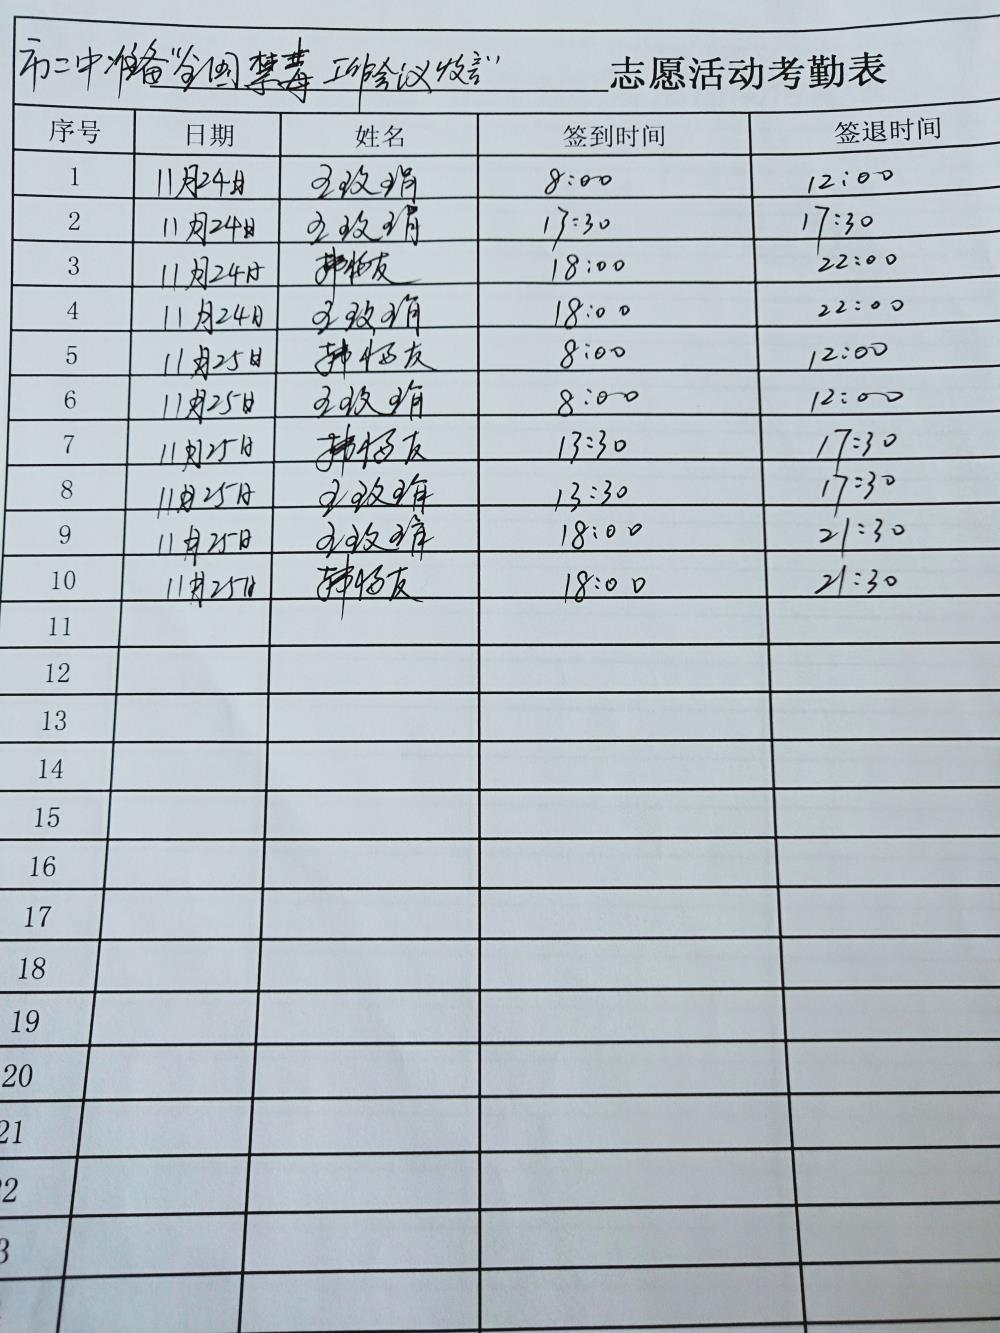 市二中准备"全国禁毒工作会议发言" 志愿活动考勤表
序号 日期 姓名 签到时间 签退时间
1 11月24日 王玫瑁 8:00 12:00
2 11月24日 王玫瑁 13:30 17:30
3 11月24日 韩杨友 18:00 22:00
4 11月24日 王玫瑁 18:00 22:00
5 11月25日 韩杨友 8:00 12:00
6 11月25日 王玫瑁 8:00 12:00
7 11月25日 韩杨友 13:30 17:30
8 11月25日 王玫瑁 13:30 17:30
9 11月25日 王玫瑁 18:00 21:30
10 11月25日 韩杨友 18:00 21:30
11
12
13
14
15
16
17
18
19
20
21